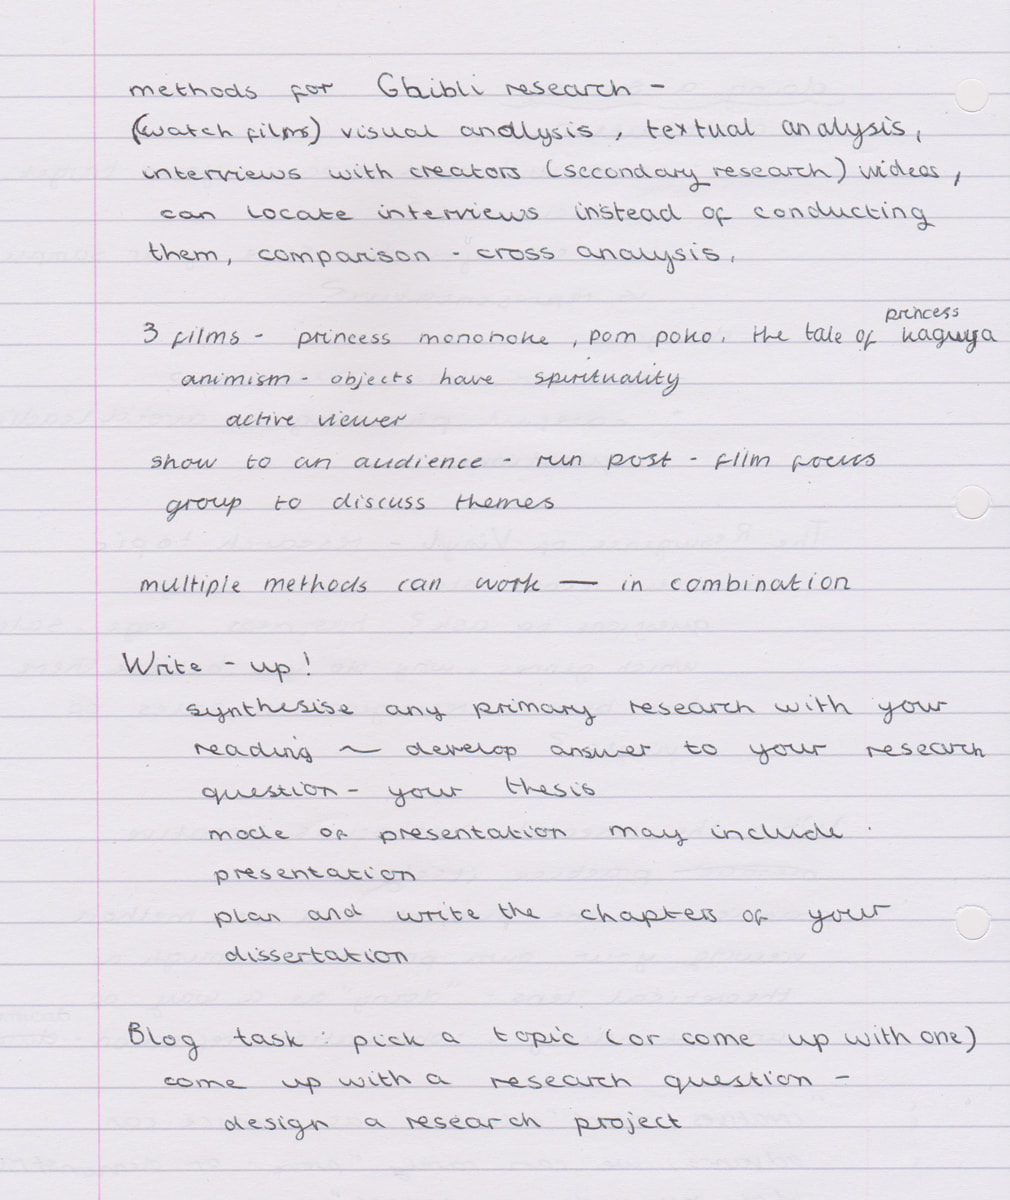 methods for Ghibli research -
(watch films) visual analysis, textual analysis,
interviews with creators (secondary research) videos,
can locate interviews instead of conducting
them, comparison - cross analysis.
princess
3 films - princess mononoke, pom poko, the tale of kaguya
animism - objects have spirituality
active viewer
show to an audience - run post-film focus
group to discuss themes
multiple methods can work — in combination
Write-up!
synthesise any primary research with your
reading ~ develop answer to your research
question - your thesis
mode of presentation may include
presentation
plan and write the chapters of your
dissertation
Blog task: pick a topic (or come up with one)
come up with a research question -
design a research project